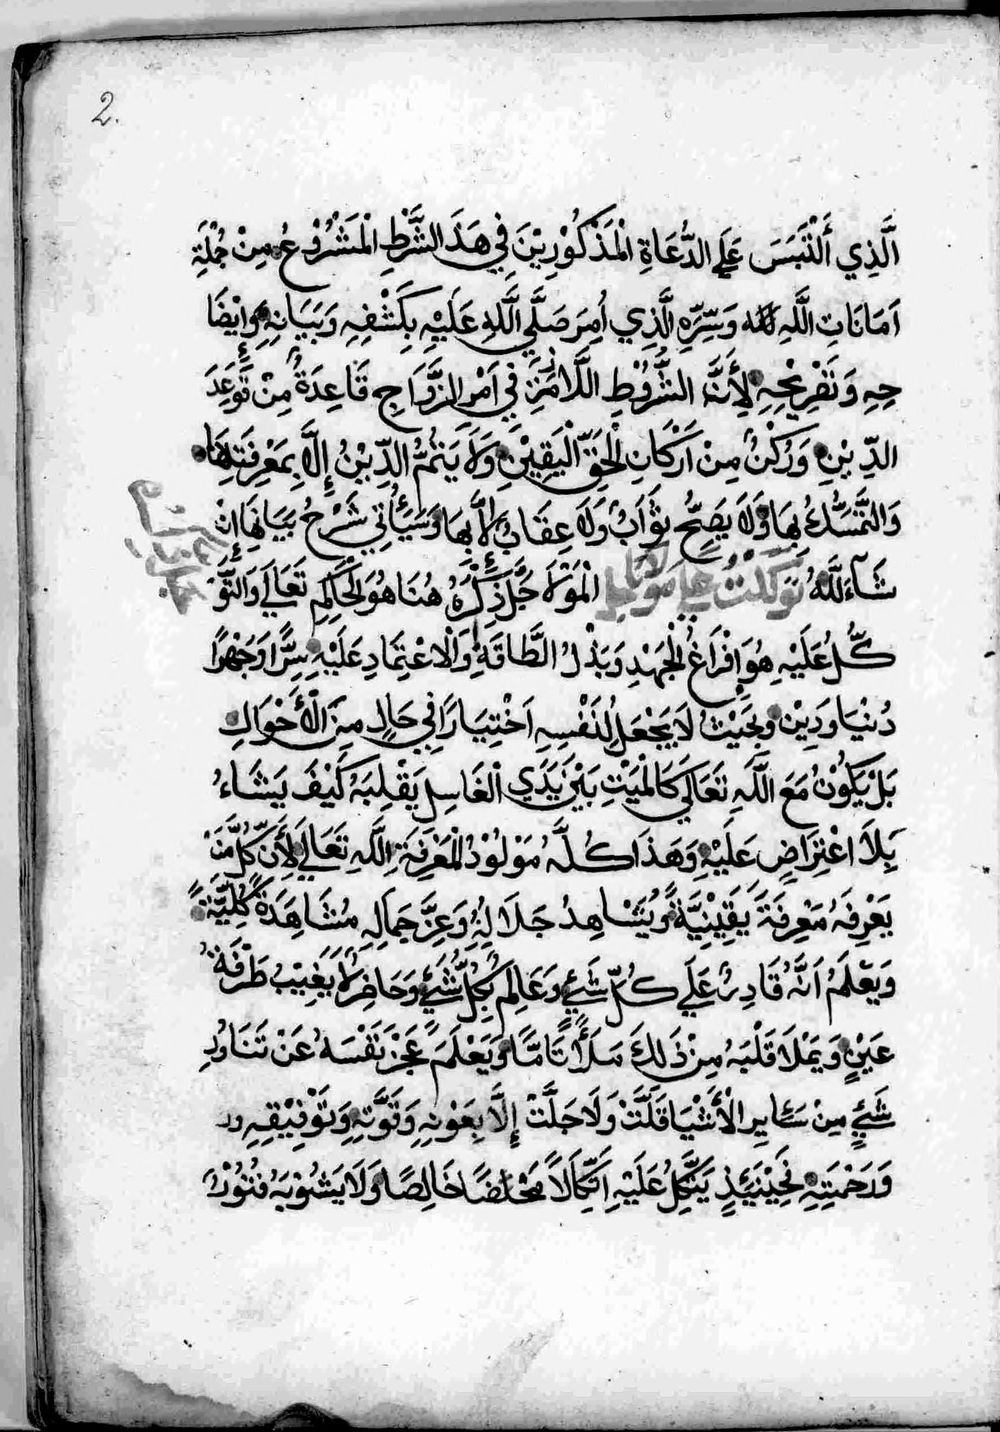 2.
الَّذِي أَلْتَبَسَ عَلَى الدُّعَاةِ الْمَذْكُوْرِيْنَ فِي هَذَ الشَّرْطِ الْمَشْرُوْعُ مِنْ جُمْلَةِ
اَمَانَاتِ اللَّهِ لله وَسِرِّهِ الَّذِي اُمِرَ صَلَّى اللَّهُ عَلَيْهِ بِكَشْفِهِ وَبَيَانِهِ وَاِيْضَا
حِهِ وَتَفْرِيْحِهِ لِأَنَّ الشُّرُوْطِ اللَّازِمَةِ فِي اَمْرِ الزَّوَاجِ قَاعِدَةٌ مِنْ قَوَعِدَ
الدِّيْنِ وَرُكْنٌ مِنْ اَرْكَانِ الْحَقِّ الْيَقِيْنِ وَلَا يَتِمُّ الدِّيْنُ اِلَّا بِمَعْرِفَتِهَا
وَالتَّمَسُّكُ بِهَا وَلَا يَصِحُّ ثَوَابٌ وَلَا عِقَابٌ اِلَّا بِهَا وَسَيَأْتِي شَرْحُ بَيَانِهَا إِنْ
شَآءَ اللَّهُ تَوَكَّلْتُ عَلَى مَوْلَانَا الْمَوْلَا جَلَّ ذِكْرُهُ هُنَا هُوَ الْحَاكِمِ تَعَالَى وَالتَّوَ
كُّلُ عَلَيْهِ هُوَ اِفْرَاغُ الْجَهْدِ وَبَذْلُ الطَّاقَةِ وَالْاعْتِمَادِ عَلَيْهِ سِرًّا وَجَهْرًا
دُنْيَا وَدِيْنِ وَبَحَيْثُ لَا يَجْعَلُ لِنَفْسِهِ اَخْتِيَارًا فِي حَالٍ مِنَ الْأَحْوَالِ
بَلْ يَكُوْنُ مَعَ اللَّهِ تَعَالَى كَالْمَيْتِ بَيْنَ يَدَيِ الْغَاسِلِ يَقْلِبَهُ كَيْفَ يَشَاءُ
بِلَا اعْتِرَاضٍ عَلَيْهِ وَهَذَا كُلَّهُ مَوْلُوْدُ الْمَعْرِفَةِ اللَّهِ تَعَالَى لِأَنَّ كُلَّ مَنْ
يَعْرِفَهُ مَعْرِفَةَ يَقِيْنِيَّةً وَيُشَاهِدُ جَلَالِهُ وَعِزَّ جَمَالِهِ مُشَاهَدَةً كُلِّيَّةً
وَيَعْلَمُ اَنَّهُ قَادِرٌ عَلَى كُلِّ شَيْءٍ وَعَالِمٌ بِكُلِّ شَيْءٍ وَحَاضِرٌ لَا يَغِيْبُ طَرْفَةُ
عَيْنٍ وَيَمْلَا قَلْبَهُ مِنْ ذَلِكَ مَلَأً تَامًّا وَيَعْلَمَ عَجْزَ نَفْسَهُ عَنْ تَنَاوُلِ
شَيْءٍ مِنْ سَايِرِ الْأَشْيَا قَلَّتْ وَلَا جَلَّتْ إِلَّا بِعَوْنِهِ وَقُوَّتِهِ وَتَوْفِيْقِهِ
وَرَحْمَتِهِ فَحِيْنَيْذٍ يَتَّكِلُ عَلَيْهِ اَتِّكَالًا مَحْضًا خَالِصًا وَلَا يَشُوْبَهُ فُتُوْرٌ